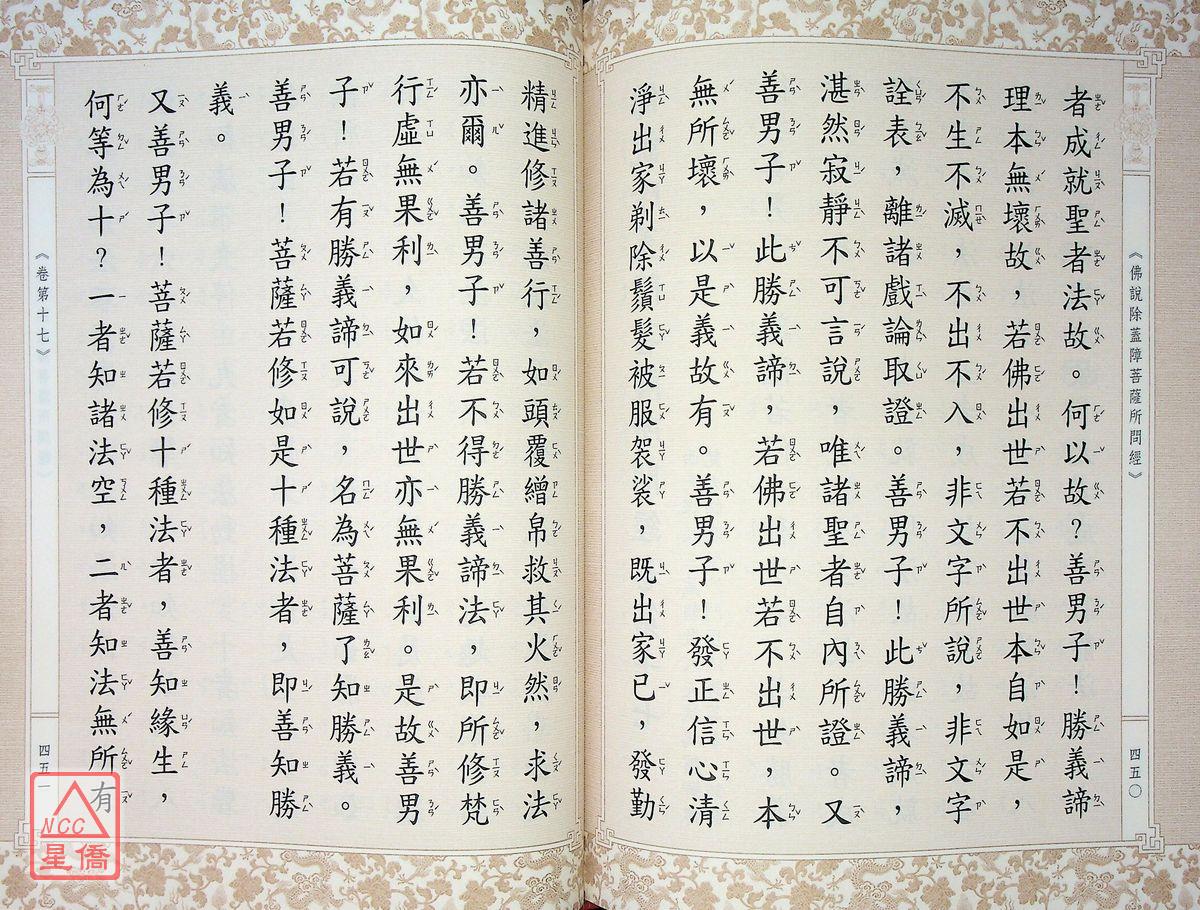 《佛說除蓋障菩薩所問經》
四五〇
者成就聖者法故。何以故？善男子！勝義諦
理本無壞故，若佛出世若不出世本自如是，
不生不滅，不出不入，非文字所說，非文字
詮表，離諸戲論取證。善男子！此勝義諦，
湛然寂靜不可言說，唯諸聖者自內所證。又
善男子！此勝義諦，若佛出世若不出世，本
無所壞，以是義故有。善男子！發正信心清
淨出家剃除鬚髮被服袈裟，既出家已，發勤
精進修諸善行，如頭覆繒帛救其火然，求法
亦爾。善男子！若不得勝義諦法，即所修梵
行虛無果利，如來出世亦無果利。是故善男
子！若有勝義諦可說，名為菩薩了知勝義。
善男子！菩薩若修如是十種法者，即善知勝
義。
又善男子！菩薩若修十種法者，善知緣生，
何等為十？一者知諸法空，二者知法無所
有
《卷第十七》
四五一
NCC
星僑